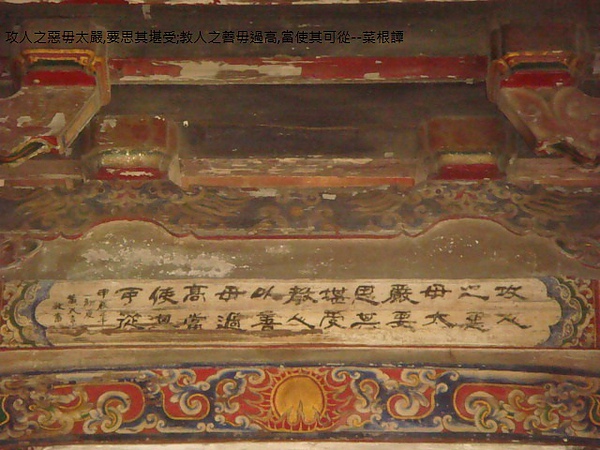 攻人之惡毋太嚴,要思其堪受;教人之善毋過高,當使其可從--菜根譚
攻人
之惡
毋太
嚴要
思其
堪受
教人
以善
毋過
高當
使其
可從